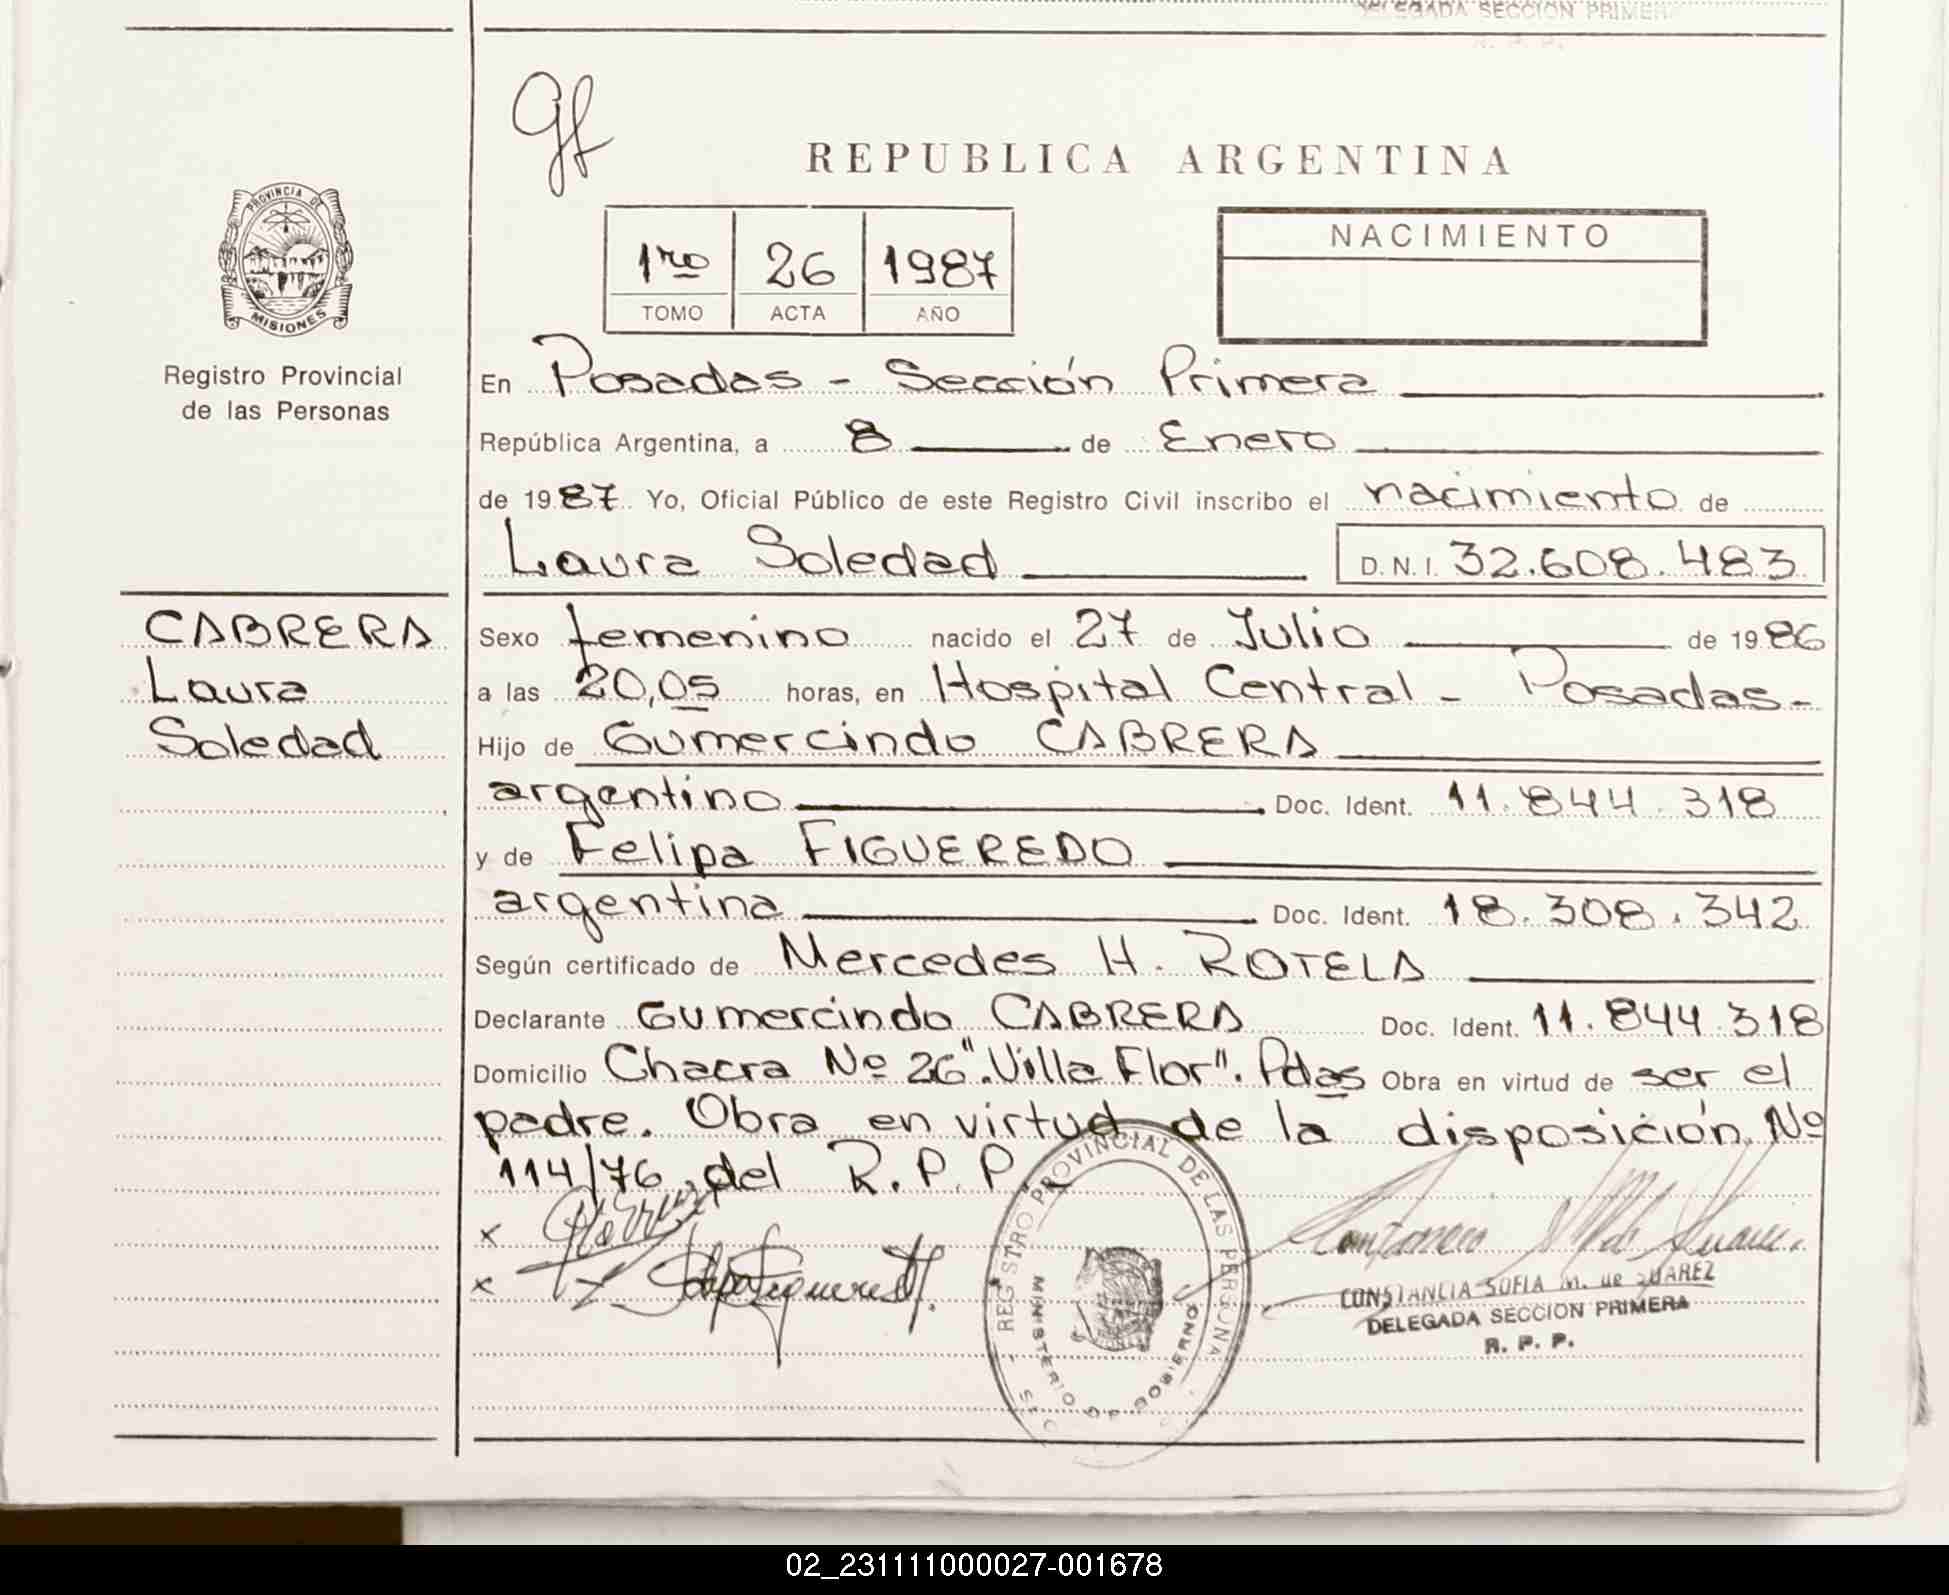 DELEGADA SECCION PRIMERA
R. P. P.
REPUBLICA ARGENTINA
PROVINCIA DE
MISIONES
Registro Provincial
de las Personas
1ro 26 1987
TOMO ACTA AÑO
NACIMIENTO
En Posadas - Sección Primera
República Argentina, a 8 de Enero
de 1987. Yo, Oficial Público de este Registro Civil inscribo el nacimiento de
Laura Soledad D.N.I. 32.608.483
CABRERA
Laura
Soledad
Sexo femenino nacido el 27 de Julio de 1986
a las 20,05 horas, en Hospital Central - Posadas-
Hijo de Gumercindo CABRERA
argentino Doc. Ident. 11.844.318
y de Felipa FIGUEREDO
argentina Doc. Ident. 18.308.342
Según certificado de Mercedes H. ROTELA
Declarante Gumercindo CABRERA Doc. Ident. 11.844.318
Domicilio Chacra Nº 26 "Villa Flor". Pdas Obra en virtud de ser el
padre. Obra en virtud de la disposición Nº
114/76 del R.P.P.
x
x
REGISTRO PROVINCIAL DE LAS PERSONAS
MINISTERIO DE GOBIERNO
CONSTANCIA SOFIA M. de SUAREZ
DELEGADA SECCION PRIMERA
R. P. P.
02_231111000027-001678